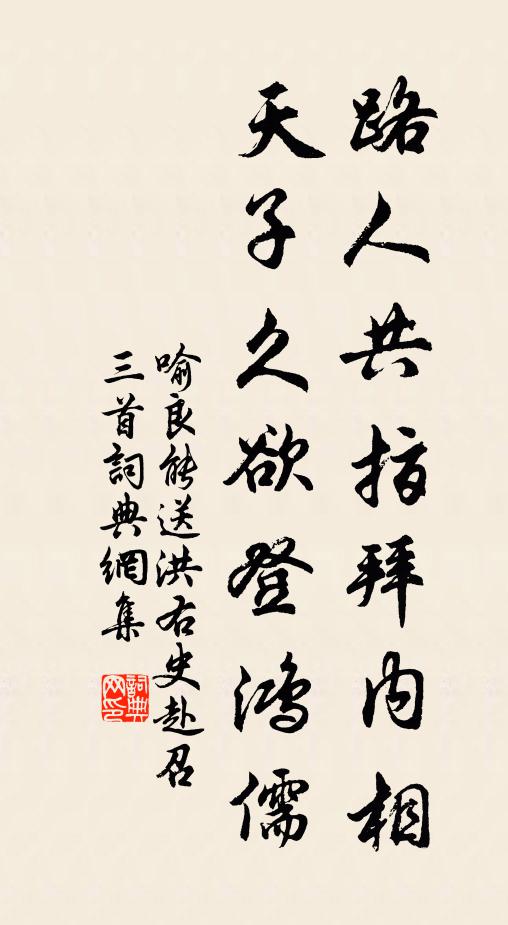 路人共指拜内相
天子久欲登鴻儒
喻良能送洪右史赴召
三首詞典網集
詞典
网印